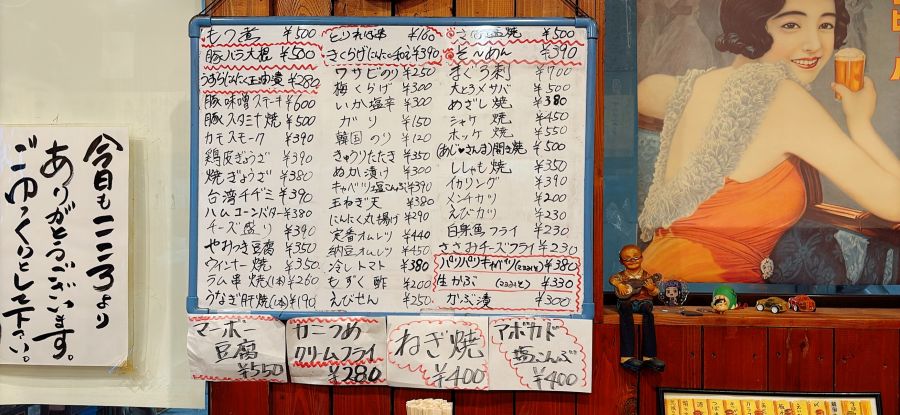 今日もこころより
ありがとうございます。
ごゆっくりして下さい。
もつ煮 ¥500
豚バラ大根 ¥500
¥280
豚味噌ステーキ ¥600
豚スタミナ焼 ¥500
カモスモーク ¥390
鶏皮ぎょうざ ¥390
焼ぎょうざ ¥380
台湾チヂミ ¥390
ハムコーンバター ¥380
チーズ盛り ¥390
やみつき豆腐 ¥350
ウインナー焼 ¥350
ラム串焼(1本) ¥260
うなぎ肝焼(1本) ¥190
とりわさ ¥160
きくらげにんにく和え ¥390
ワサビのり ¥250
梅くらげ ¥300
いか塩辛 ¥300
ガリ ¥150
韓国のり ¥120
きゅうりたたき ¥350
ぬか漬け ¥300
キャベツ塩こんぶ ¥390
玉ねぎ天 ¥380
にんにく丸揚げ ¥290
定番オムレツ ¥440
納豆オムレツ ¥450
冷しトマト ¥380
もずく酢 ¥200
えびせん ¥250
さんま塩焼 ¥500
そうめん ¥390
まぐろ刺 ¥700
大とろメサバ ¥500
めざし焼 ¥380
シャケ焼 ¥450
ホッケ焼 ¥550
(あじ♥さんま)開き焼 ¥500
ししゃも焼 ¥350
イカリング ¥390
メンチカツ ¥200
えびカツ ¥230
白身魚フライ ¥230
ささみチーズフライ ¥230
パリパリキャベツ ¥380
生かぶ ¥330
かぶ漬 ¥300
マーボー
豆腐
¥550
カニつめ
クリームフライ
¥280
ねぎ焼
¥400
アボカド
塩こんぶ
¥400